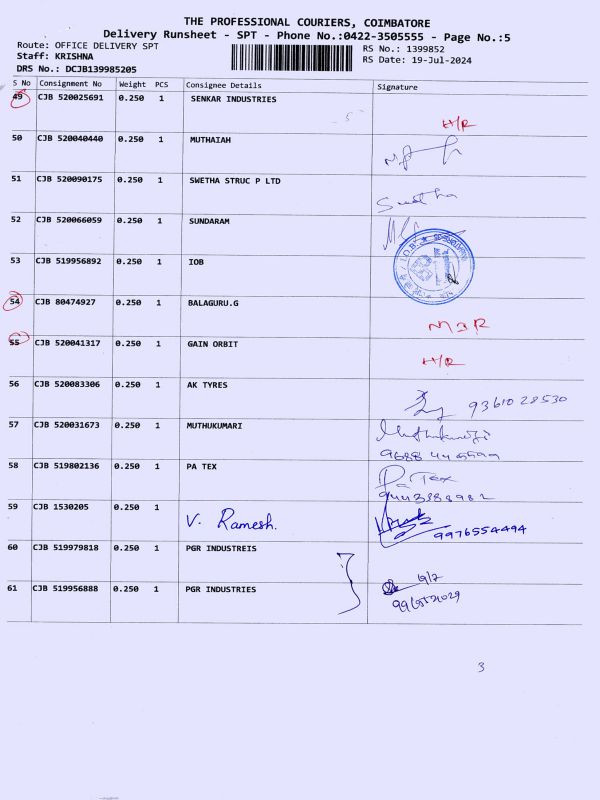 THE PROFESSIONAL COURIERS, COIMBATORE
Delivery Runsheet - SPT - Phone No.:0422-3505555 - Page No.:5
Route: OFFICE DELIVERY SPT
RS No.: 1399852
Staff: KRISHNA
RS Date: 19-Jul-2024
DRS No.: DCJB139985205
S No Consignment No Weight PCS Consignee Details Signature
49 CJB 520025691 0.250 1 SENKAR INDUSTRIES
H/R
50 CJB 520040440 0.250 1 MUTHAIAH
51 CJB 520090175 0.250 1 SWETHA STRUC P LTD
Swetha
52 CJB 520066059 0.250 1 SUNDARAM
53 CJB 519956892 0.250 1 IOB
54 CJB 80474927 0.250 1 BALAGURU.G
MJR
55 CJB 520041317 0.250 1 GAIN ORBIT
H/R
56 CJB 520083306 0.250 1 AK TYRES
9361028530
57 CJB 520031673 0.250 1 MUTHUKUMARI
58 CJB 519802136 0.250 1 PA TEX
Pa Tex
9443388982
59 CJB 1530205 0.250 1 V. Ramesh.
9976554494
60 CJB 519979818 0.250 1 PGR INDUSTREIS
61 CJB 519956888 0.250 1 PGR INDUSTRIES
3